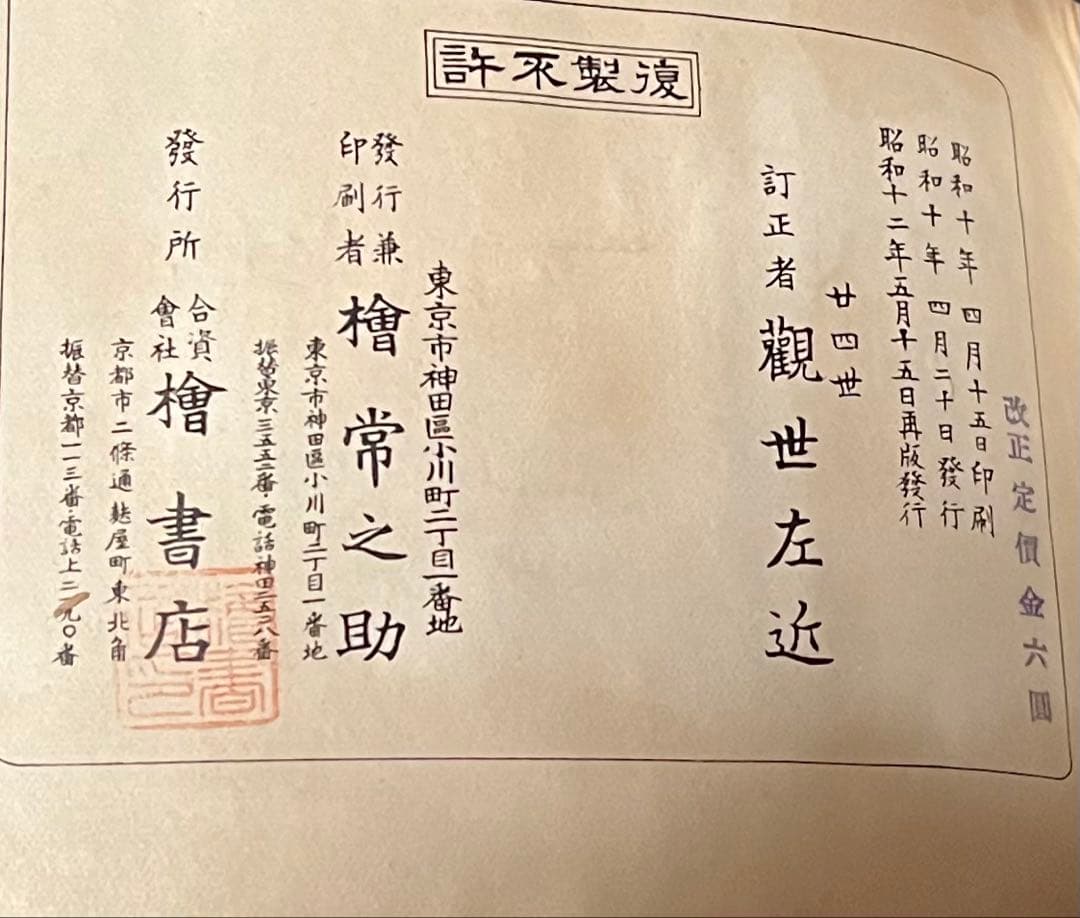 復製不許
改正定價金六圓
昭和十年四月十五日印刷
昭和十年四月二十日發行
昭和十二年五月十五日再版發行
廿四世
訂正者 觀世左近
東京市神田區小川町二丁目一番地
發行兼印刷者 檜常之助
東京市神田區小川町二丁目一番地
振替東京三五五二番・電話神田二五二八番
發行所 合資會社 檜書店
京都市二條通麩屋町東北角
振替京都一一三番・電話上二一九〇番